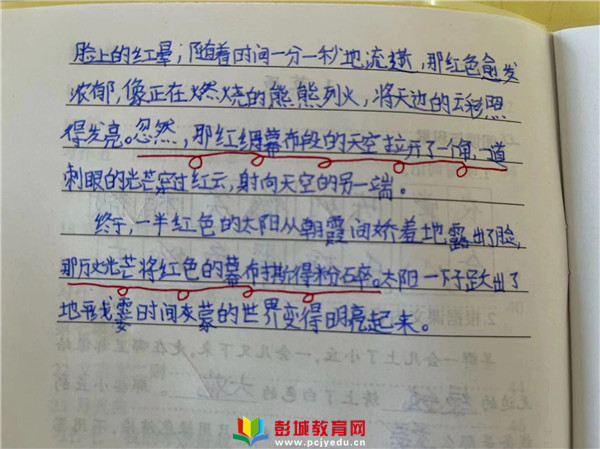 脸上的红晕；随着时间一分一秒地流逝，那红色愈发
浓郁，像正在燃烧的熊熊列火，将天边的云彩照
得发亮。忽然，那红绸幕布段的天空拉开了一角，一道
刺眼的光芒穿过红云，射向天空的另一端。
终于，一半红色的太阳从朝霞间娇羞地露出了脸，
那万丈光芒将红色的幕布撕得粉碎。太阳一下子跃出了
地平线霎时间灰蒙的世界变得明亮起来。
彭城教育网
www.pcjyedu.cn